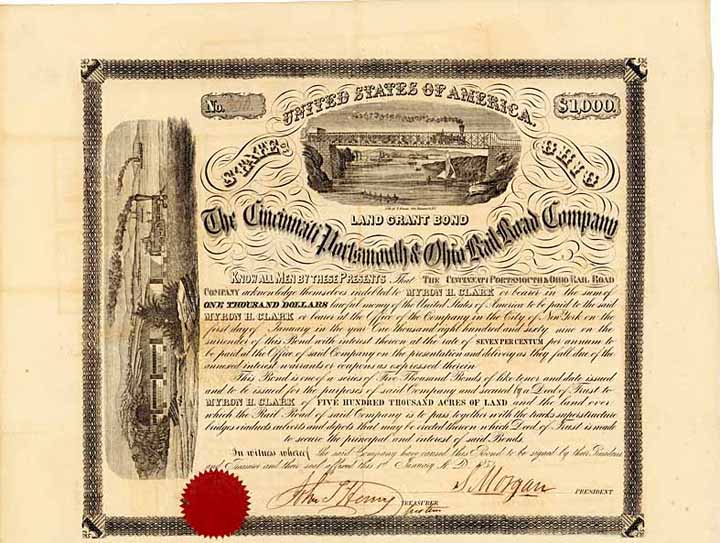 No.
UNITED STATES OF AMERICA.
$1,000.
STATE OF
OHIO
LAND GRANT BOND
The Cincinnati Portsmouth & Ohio Rail Road Company
KNOW ALL MEN BY THESE PRESENTS. That THE CINCINNATI PORTSMOUTH & OHIO RAIL ROAD
COMPANY acknowledge themselves indebted to MYRON H. CLARK or bearer in the sum of
ONE THOUSAND DOLLARS lawful money of the United States of America to be paid to the said
MYRON H. CLARK or bearer at the Office of the Company in the City of New York on the
first day of January in the year One thousand eight hundred and sixty nine on the
surrender of this Bond with interest thereon at the rate of SEVEN PER CENTUM per annum to
be paid at the Office of said Company on the presentation and delivery as they fall due of the
annexed interest warrants or coupons as expressed therein.
This Bond is one of a series of Five Thousand Bonds of like tenor and date issued
and to be issued for the purposes of said Company and secured by a Deed of Trust to
MYRON H. CLARK of FIVE HUNDRED THOUSAND ACRES OF LAND and the land over
which the Rail Road of said Company is to pass together with the tracks superstructure
bridges viaducts culverts and depots that may be erected thereon which Deed of Trust is made
to secure the principal and interest of said Bonds.
In witness whereof the said Company have caused this Bond to be signed by their President
and Treasurer and their seal affixed this 1st January A. D.
John S Henry TREASURER
S. Morgan PRESIDENT